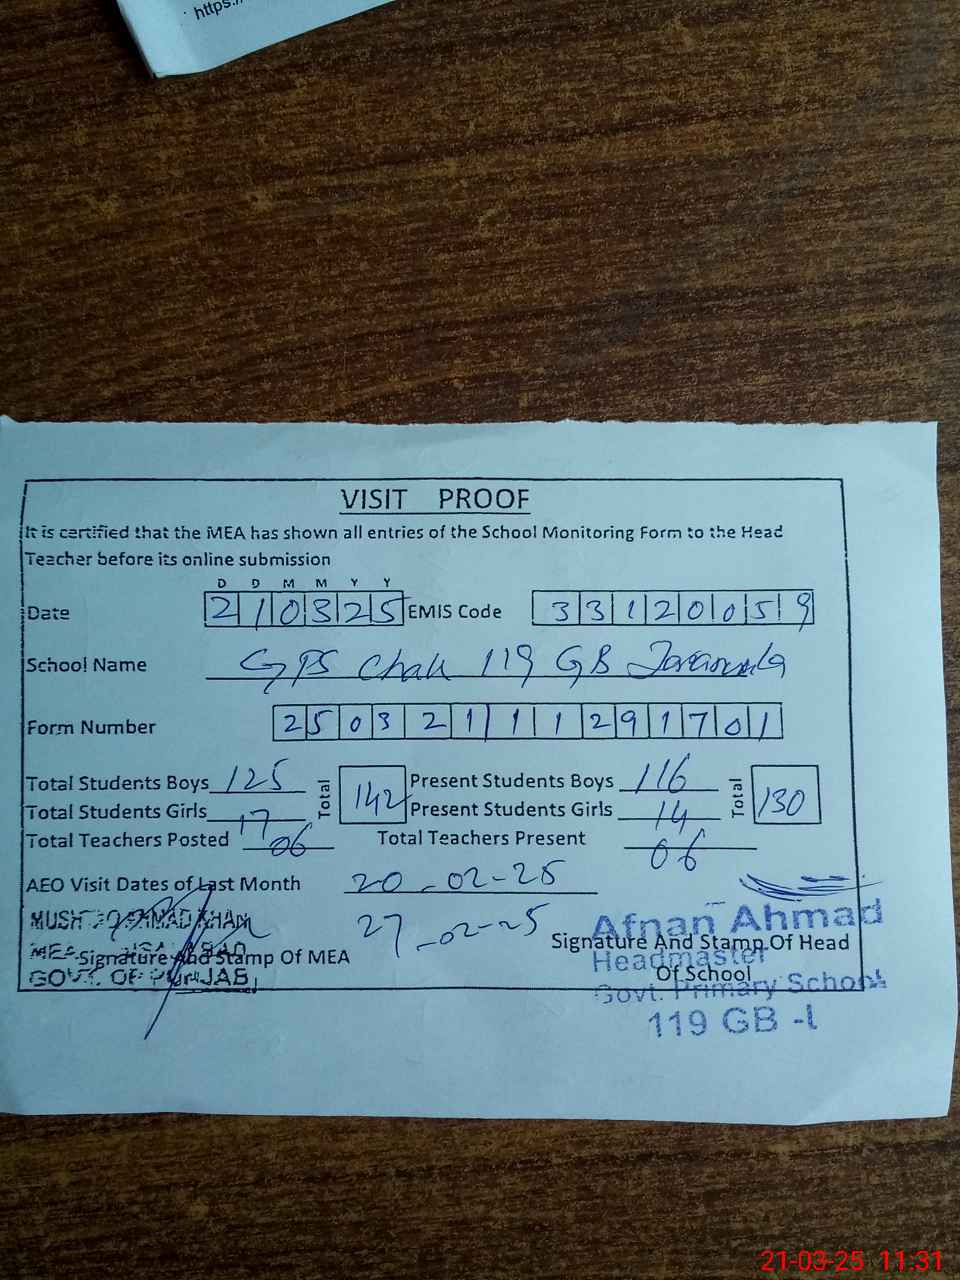 https:/
VISIT PROOF
It is certified that the MEA has shown all entries of the School Monitoring Form to the Head
Teacher before its online submission
D D M M Y Y
Date 210325 EMIS Code 33120059
School Name GPS Chak 119 GB Jaranwala
Form Number 250321111291701
Total Students Boys 125 Total 142 Present Students Boys 116 Total 130
Total Students Girls 17 Present Students Girls 14
Total Teachers Posted 06 Total Teachers Present 06
AEO Visit Dates of Last Month 20-02-25
27-02-25
AHMAD KHAN
MEA
GOVT. OF PUNJAB
Signature And Stamp Of MEA
Afnan Ahmad
Signature And Stamp Of Head
Headmaster
Of School
Govt. Primary School
119 GB -I
21-03-25 11:31